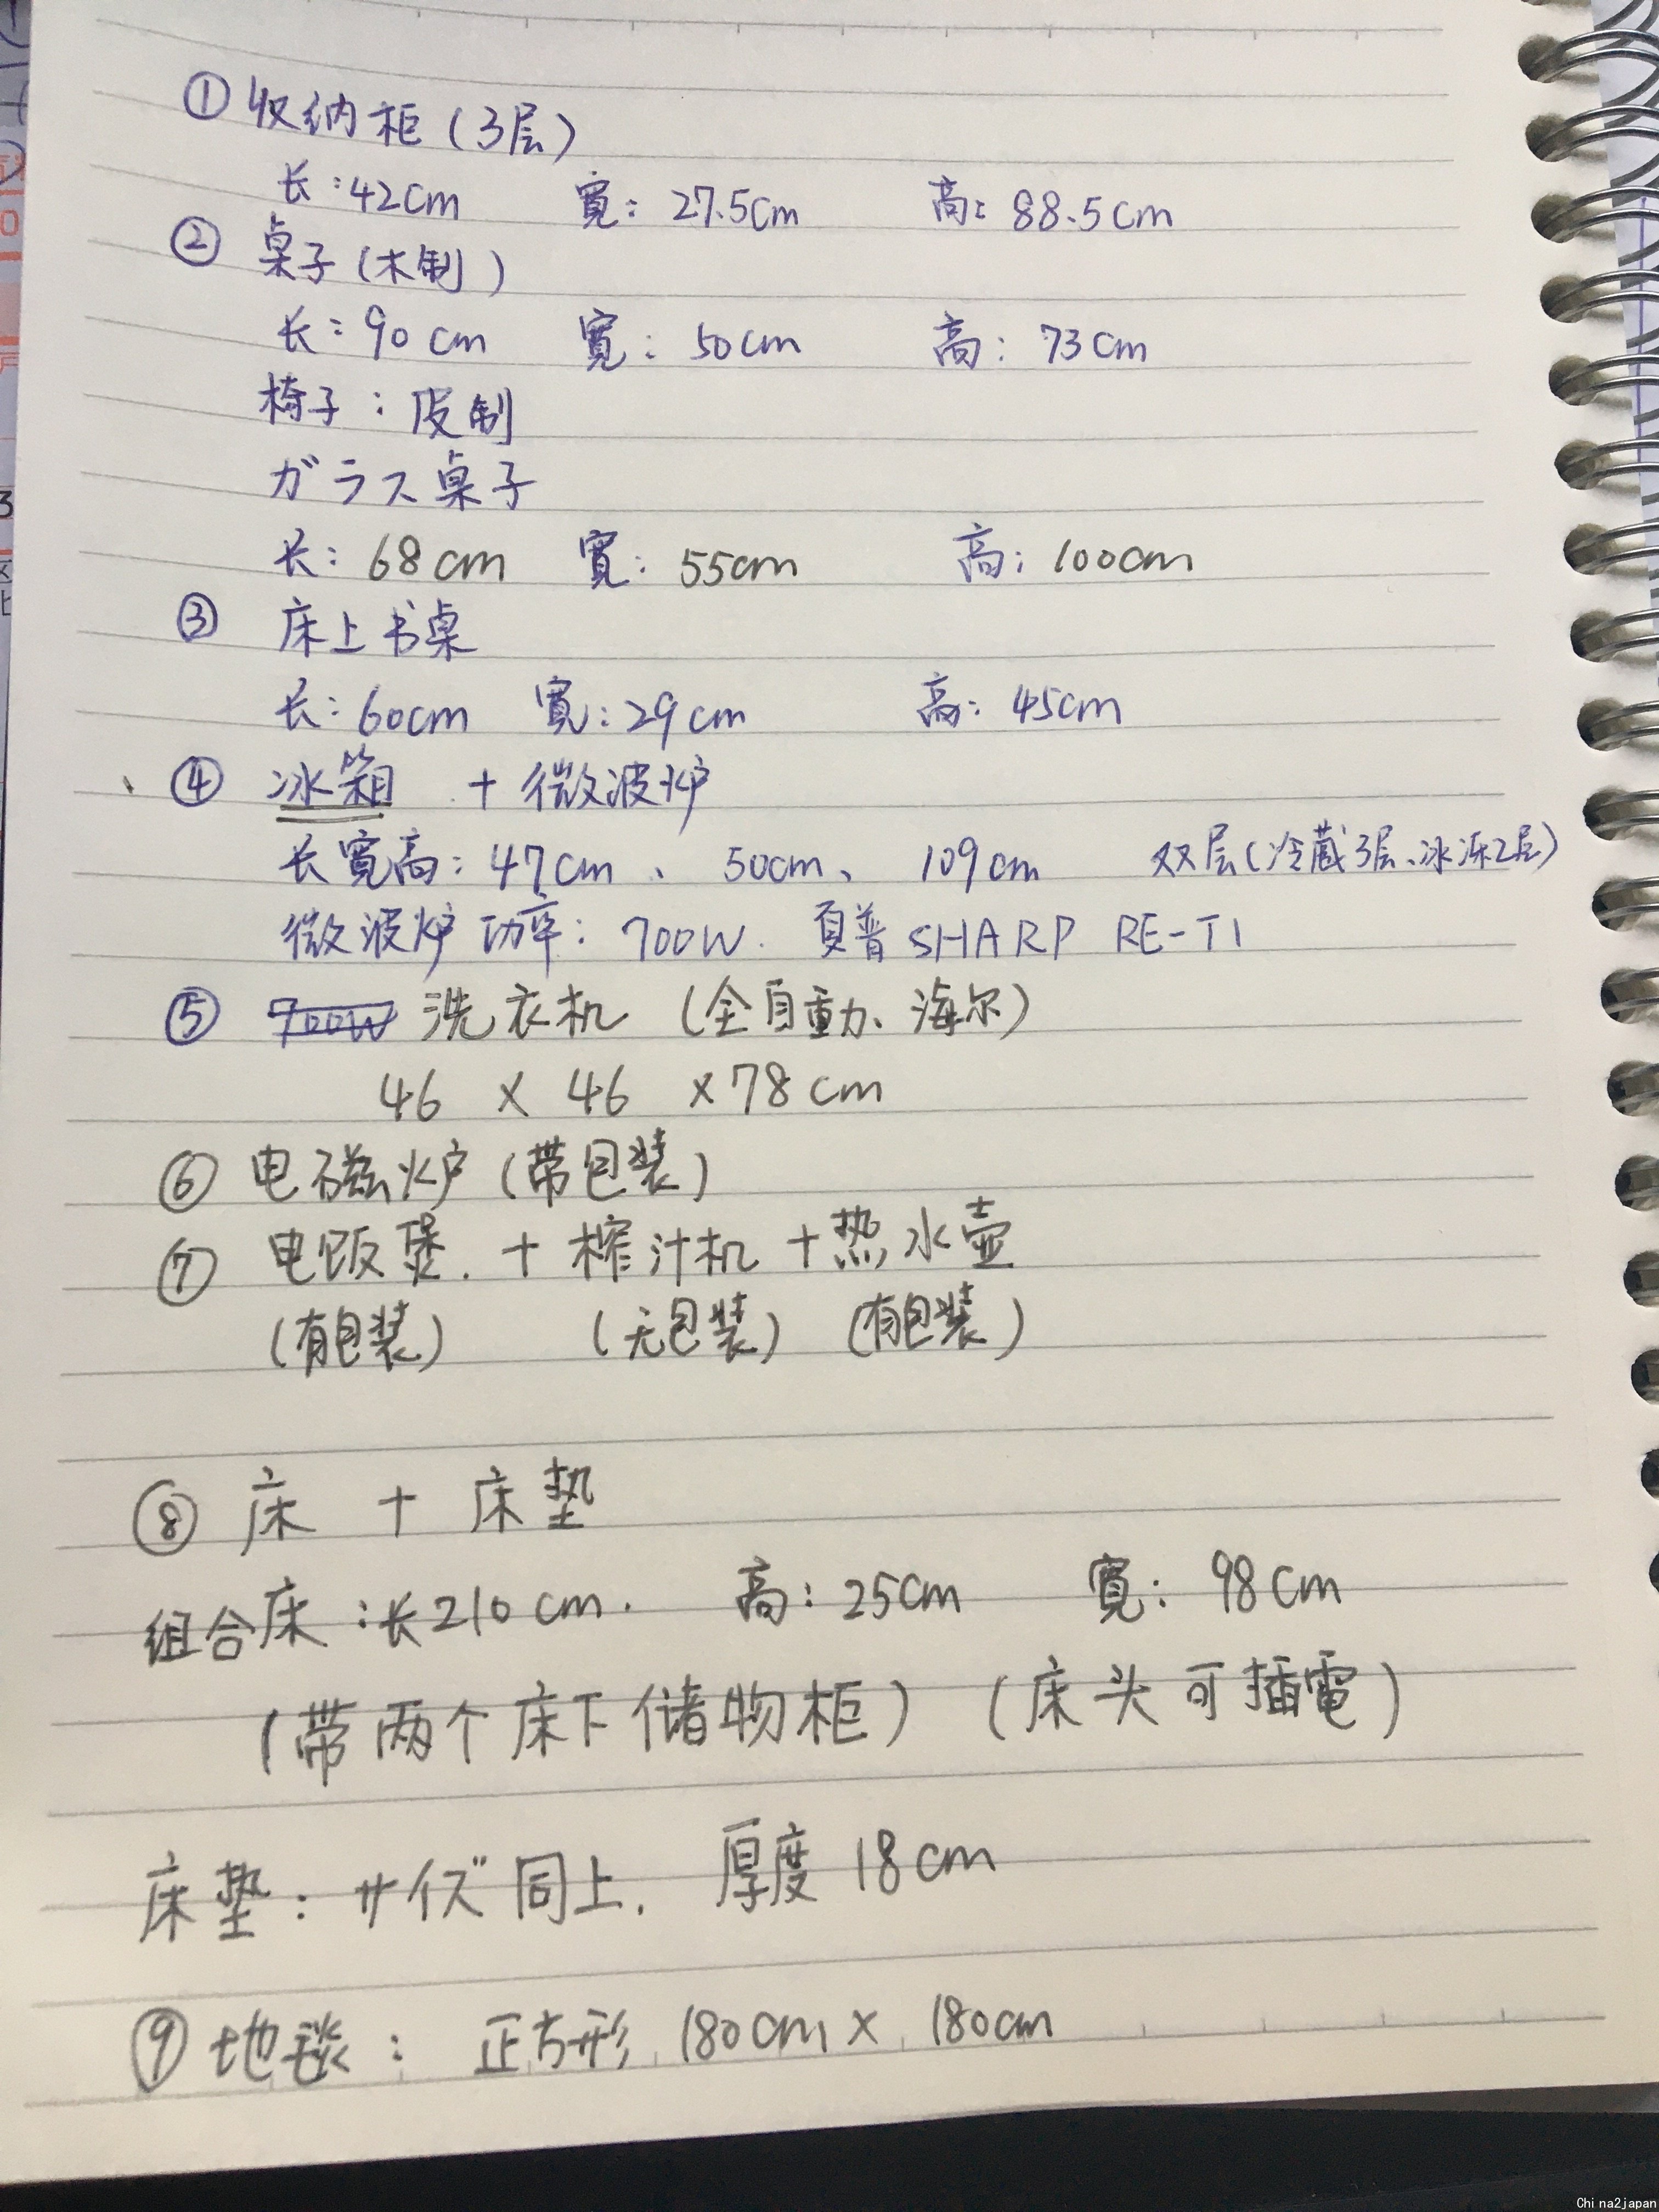 ① 收纳柜(3层)
长:42cm 寛:27.5cm 高:88.5cm
② 桌子(木制)
长:90cm 寛:50cm 高:73cm
椅子:皮制
ガラス桌子
长:68cm 寛:55cm 高:100cm
③ 床上书桌
长:60cm 寛:29cm 高:45cm
④ 冰箱 + 微波炉
长寛高:47cm、50cm、109cm 双层(冷蔵3层、冰冻2层)
微波炉功率:700W. 夏普 SHARP RE-T1
⑤ 700W 洗衣机 (全自動、海尔)
46 × 46 ×78cm
⑥ 电磁炉(带包装)
⑦ 电饭煲. + 榨汁机 +热水壶
(有包装) (无包装) (有包装)
⑧ 床 + 床垫
组合床:长210cm. 高:25cm 寛:98cm
(带两个床下储物柜) (床头可插電)
床垫:サイズ同上. 厚度18cm
⑨ 地毯: 正方形 180cm× 180cm
China2japan